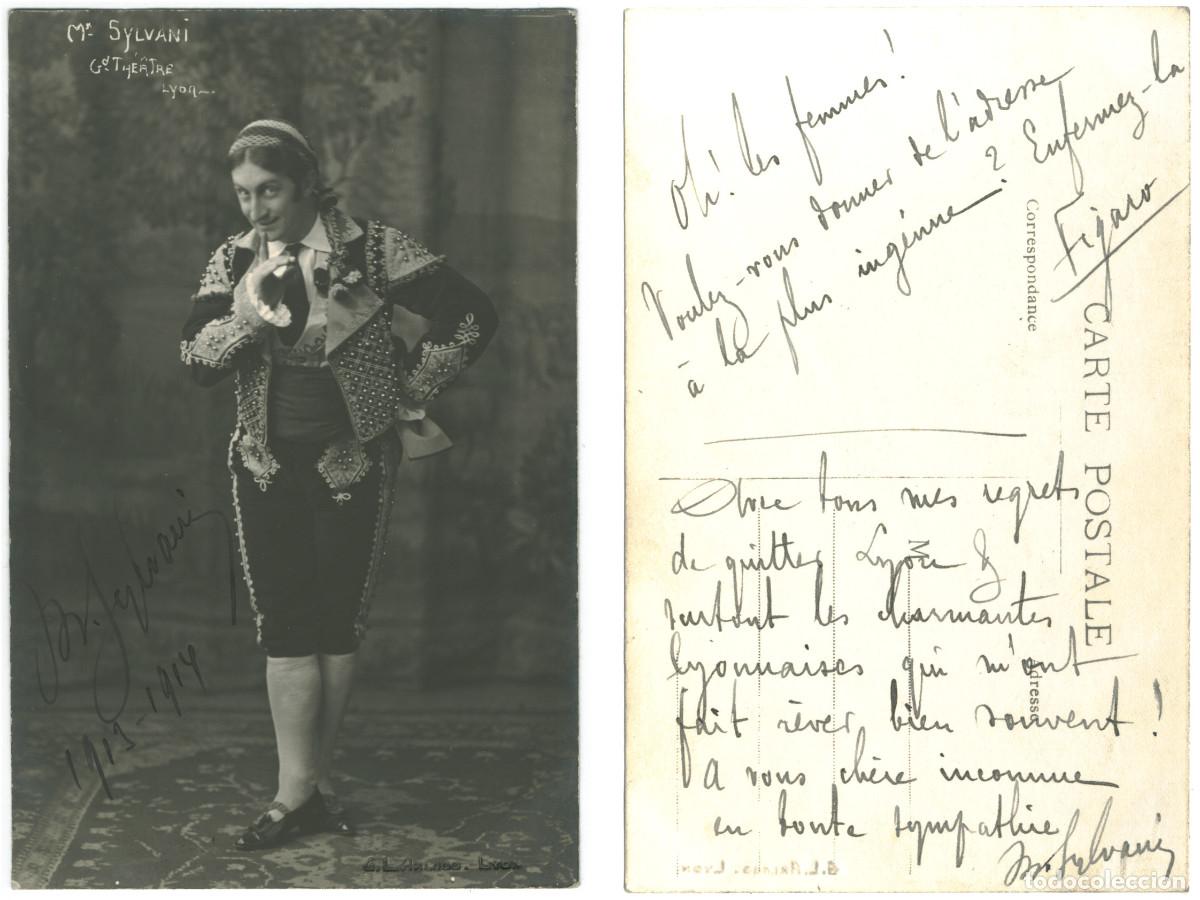 Mr. SYLVANI
Gd. THÉÂTRE
LYON
Sylvani
1913-1914
G. L. ARLAUD. LYON
Oh! les femmes!
Voulez-vous donner de l'adresse
à la plus ingénue ? Enfermez-la
Figaro
Correspondance
CARTE POSTALE
Avec tous mes regrets
de quitter Lyon &
surtout les charmantes
lyonnaises qui m'ont
fait rêver bien souvent !
A vous chère inconnue
en toute sympathie
Sylvani
M
Adresse
G. L. ARLAUD. LYON
todocoleccion